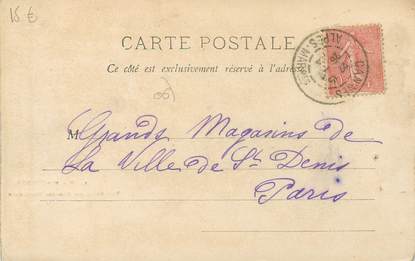 15 €
CARTE POSTALE
Ce côté est exclusivement réservé à l'adresse
CANNES
ALPES-MARIT
M Grands Magasins de
La Ville de St Denis
Paris